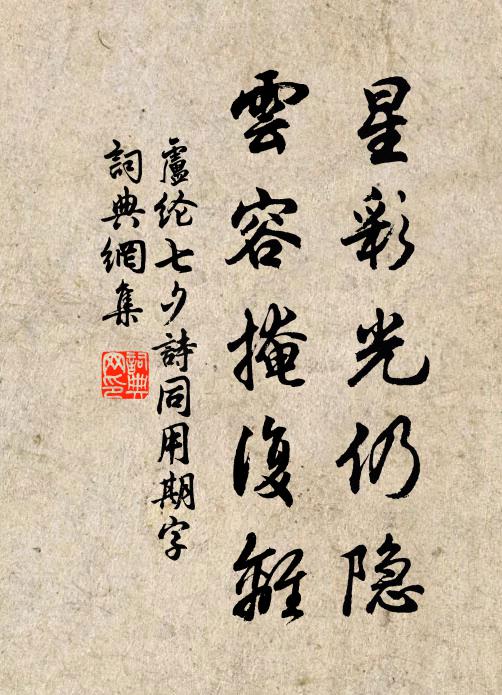 星彩光仍隐
雲容掩復離
盧纶七夕詩同用期字
詞典網集
詞典
网印